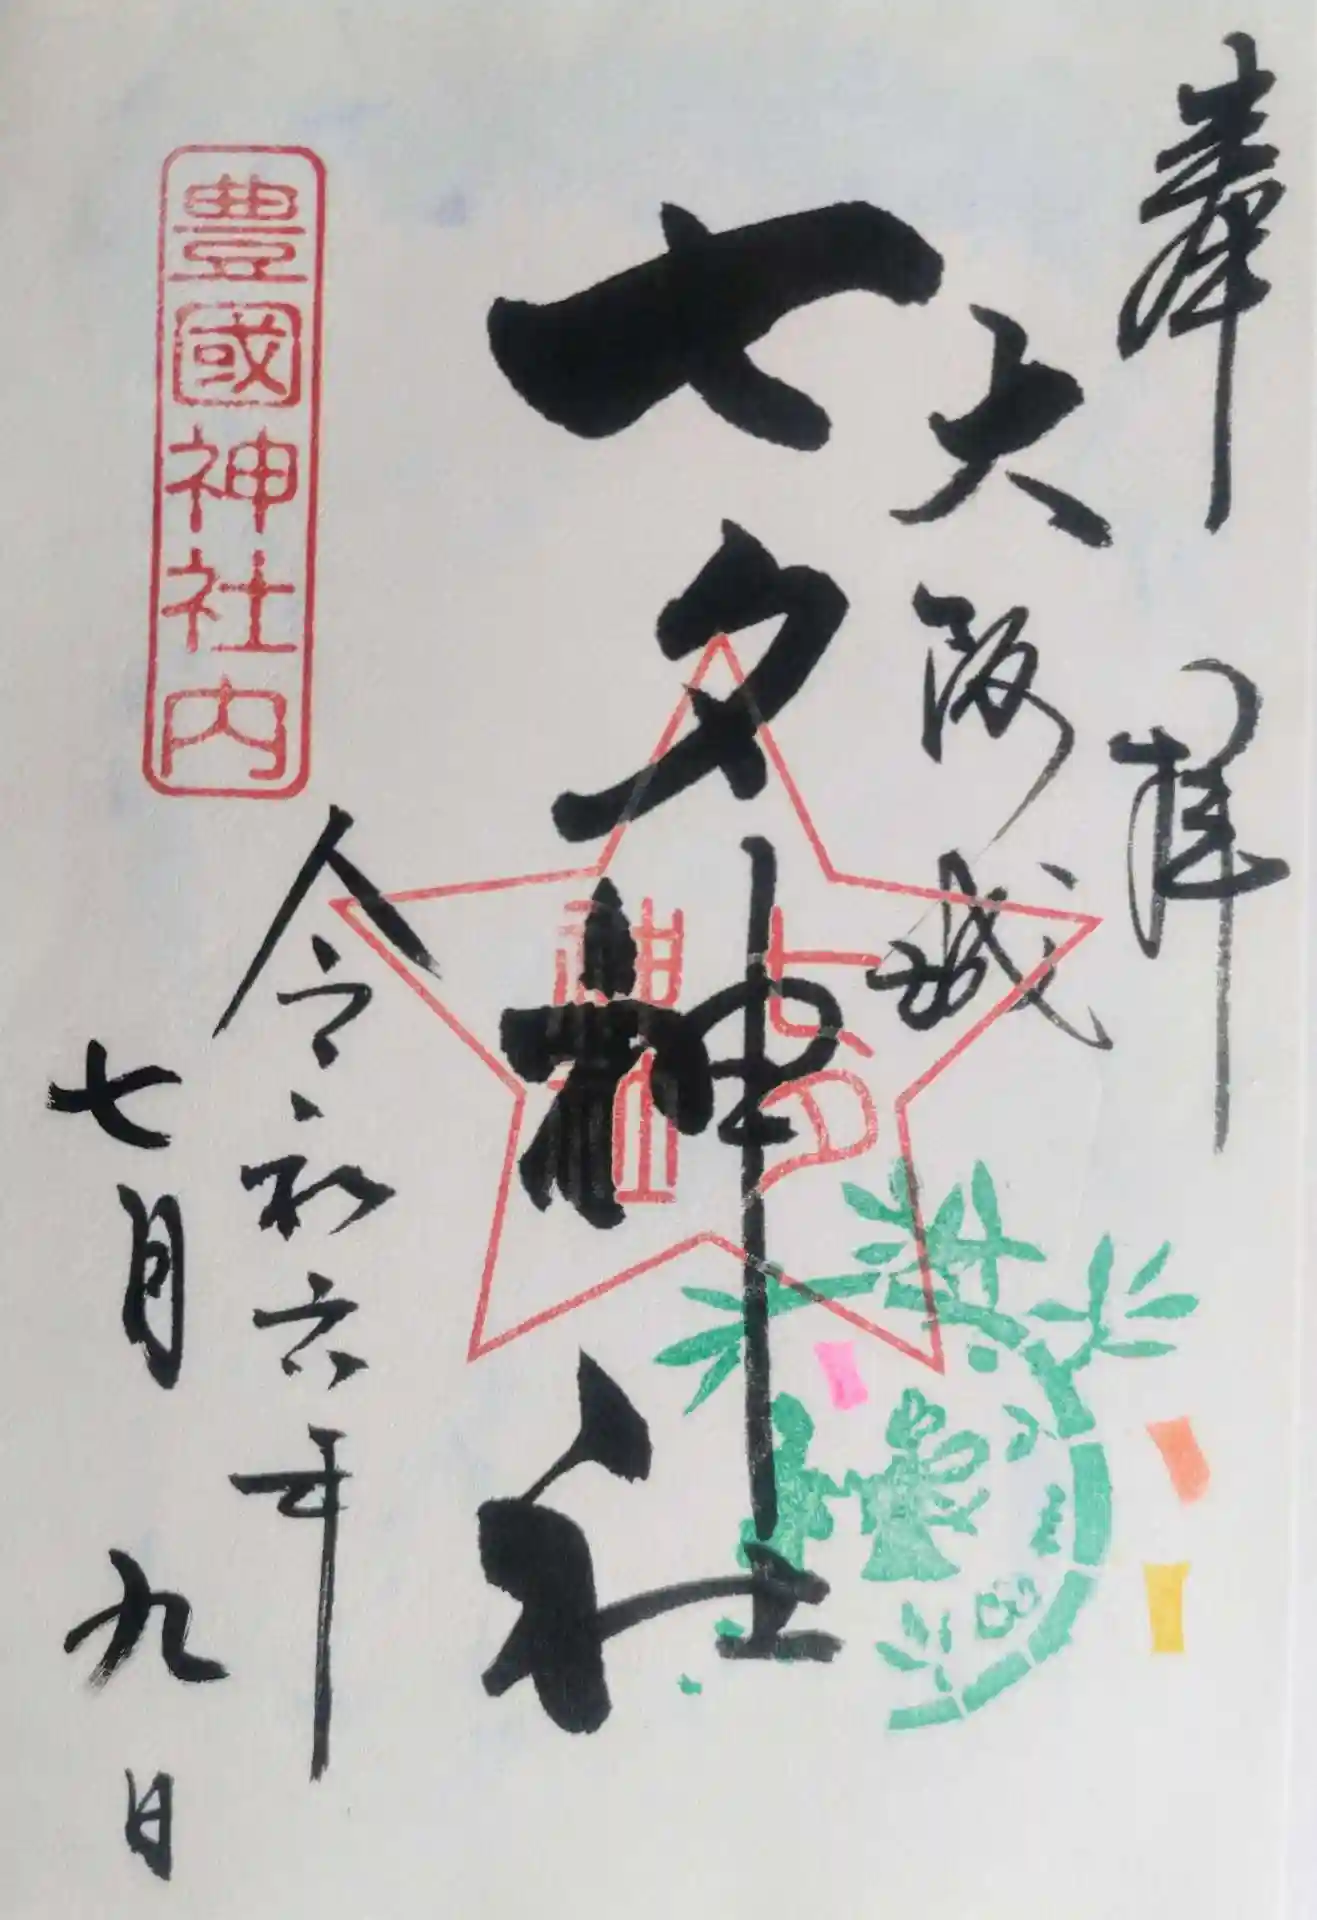 奉拝
大阪城
七夕神社
七夕
神社
令和六年
七月九日
豊國神社内